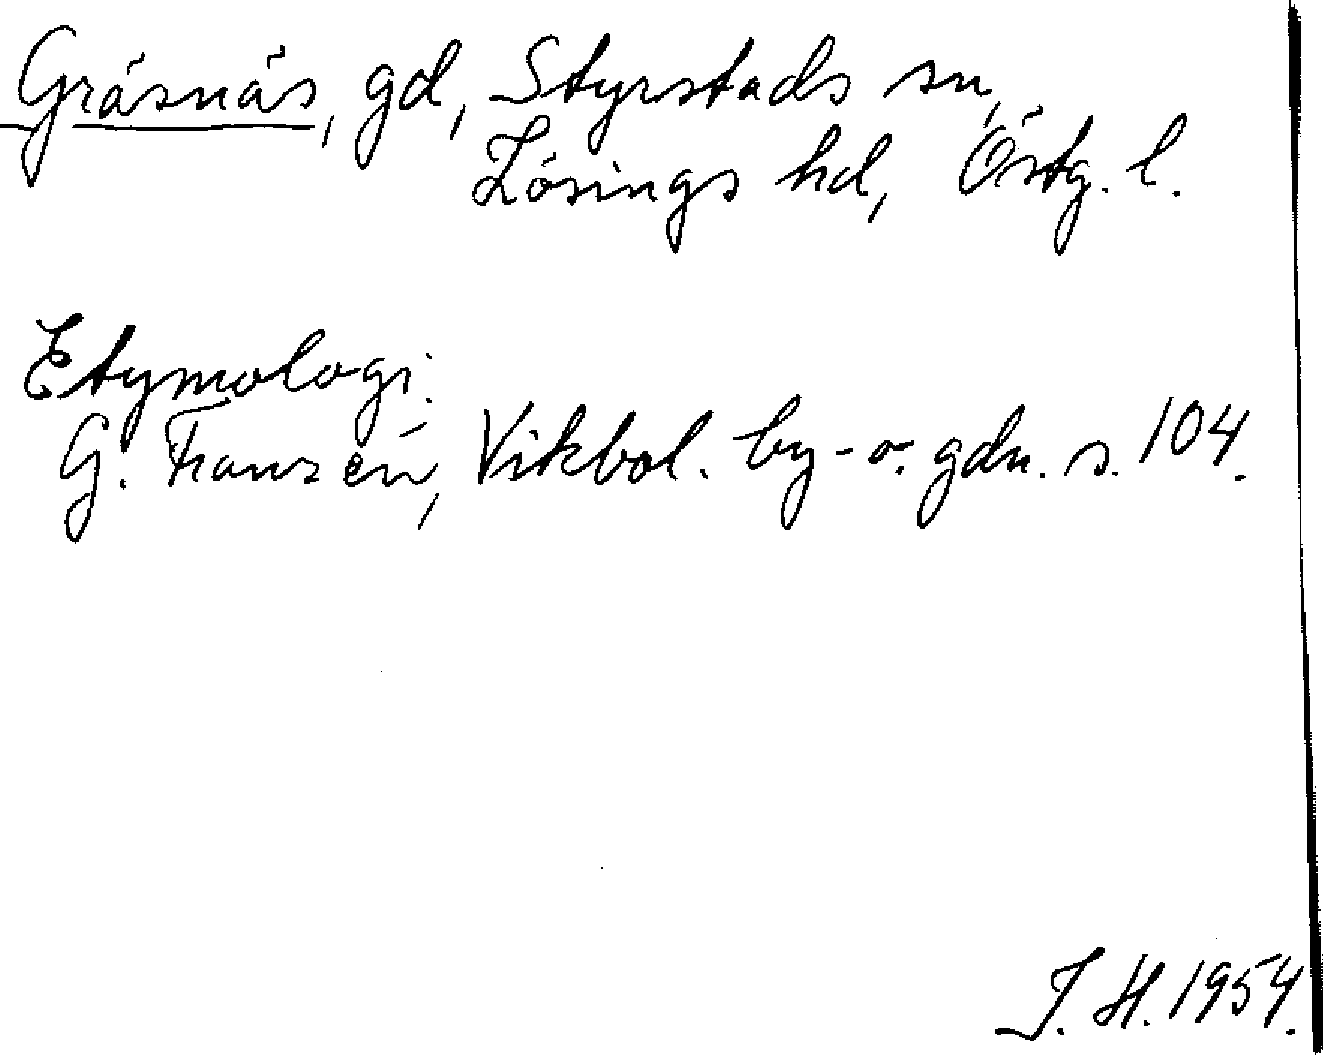 Gräsnäs, gd, Styrstads sn,
Lösings hd, Östg. l.
Etymologi.
G. Franzén, Vikbol. by- o. gdn. s. 104.
J. H. 1954.